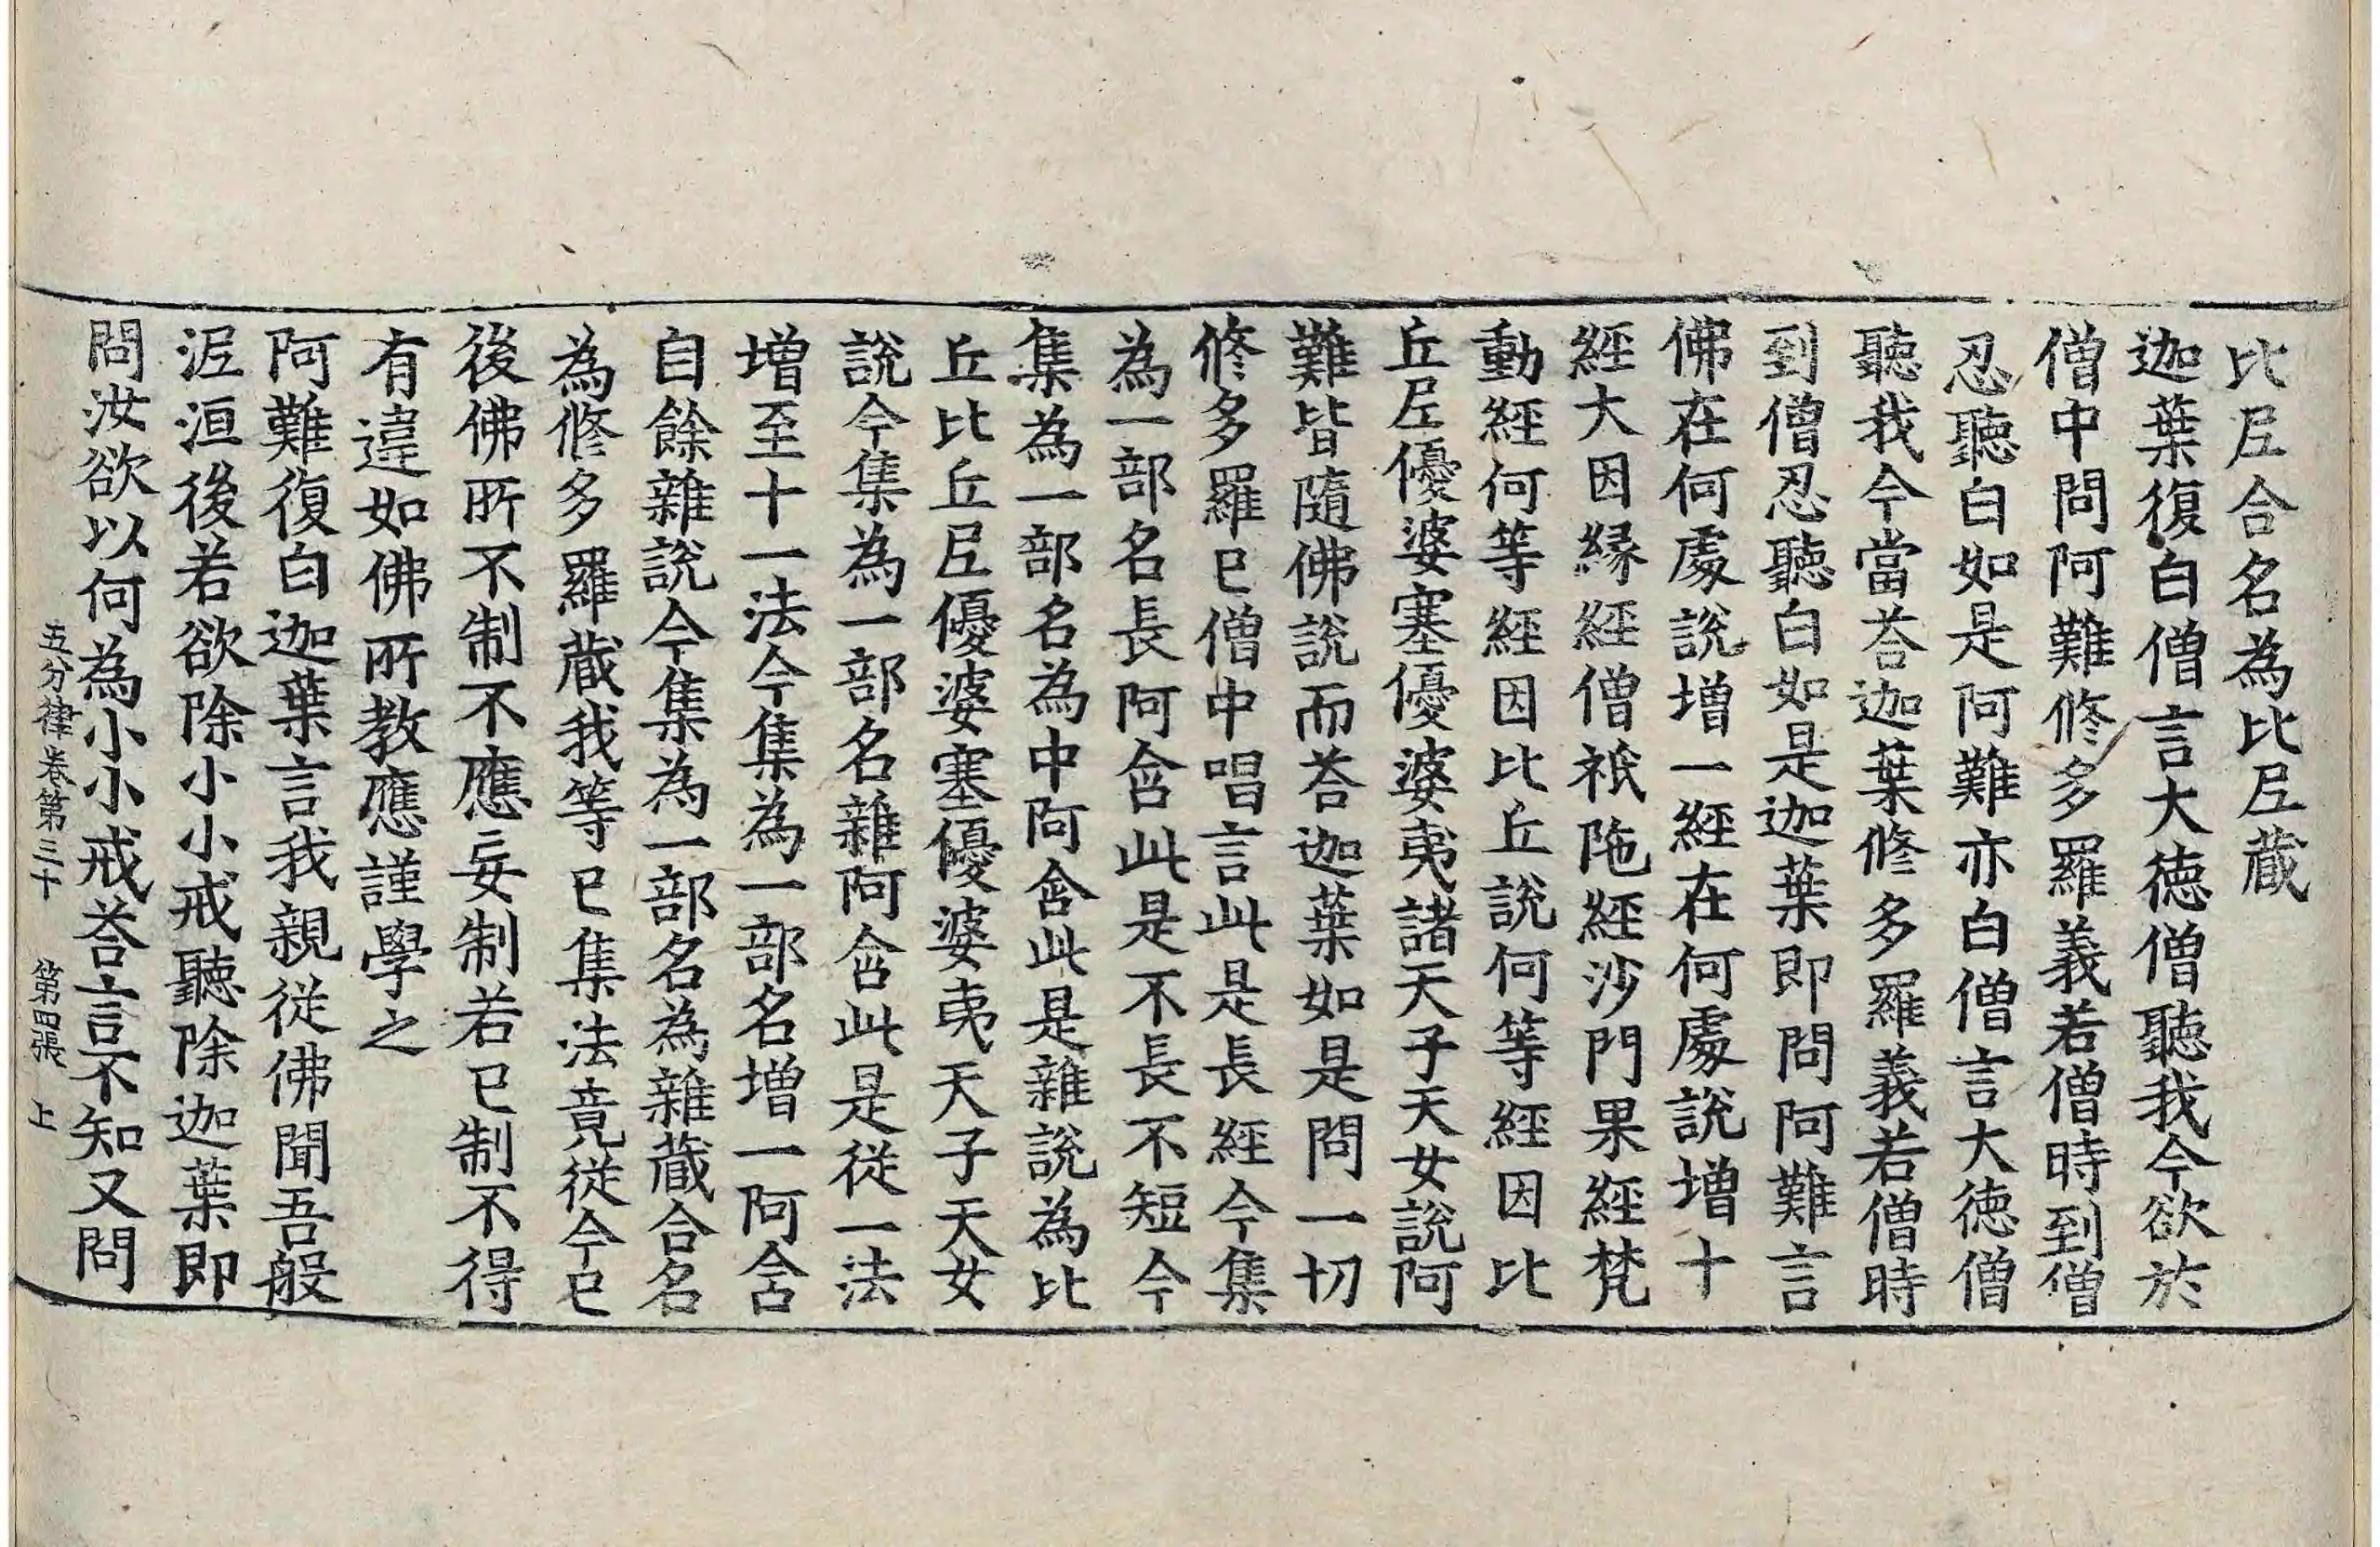 比𡰱合名為比𡰱蔵
迦葉復白僧言大徳僧聽我今欲於
僧中問阿難修多羅義若僧時到僧
忍聽白如是阿難亦白僧言大徳僧
聽我今當荅迦葉修多羅義若僧時
到僧忍聽白如是迦葉即問阿難言
佛在何處說增一經在何處說增十
經大因緣經僧祇陁經沙門果經梵
動經何等經因比丘說何等經因比
丘𡰱優婆塞優婆夷諸天子天女說阿
難皆隨佛說而荅迦葉如是問一切
修多羅已僧中唱言此是長經今集
為一部名長阿含此是不長不短今
集為一部名為中阿含此是雜說為比
丘比丘𡰱優婆塞優婆夷天子天女
說今集為一部名雜阿含此是從一法
增至十一法今集為一部名增一阿含
自餘雜說今集為一部名為雜蔵合名
為修多羅蔵我等已集法竟從今已
後佛所不制不應妄制若已制不得
有違如佛所教應謹學之
阿難復白迦葉言我親從佛聞吾般
泥洹後若欲除小小戒聽除迦葉即
問汝欲以何為小小戒荅言不知又問
五分律卷第三十 第四張 上